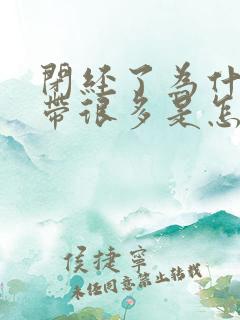 閉经了為什
帶很多是怎
侯捷寧
未任同意禁止轉載